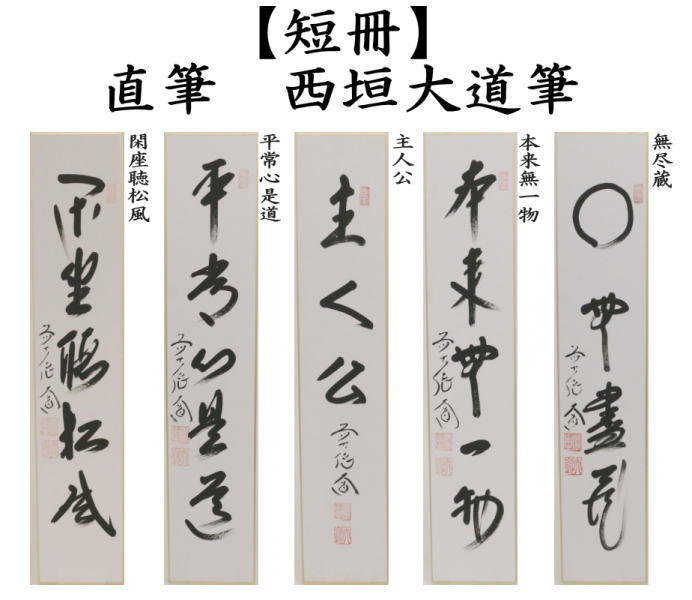 【短冊】
直筆 西垣大道筆
無尽蔵
〇無盡蔵
本来無一物
本来無一物
主人公
主人公
平常心是道
平常心是道
閑座聴松風
閑坐聴松風